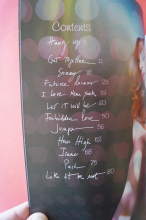 Contents
Hung up
Get Together 11
Sorry 18
Future Lovers 25
I Love New York 34
Let it will be 40
Forbidden Love 50
Jump 56
How High 62
Isaac 68
Push 75
Like it or not 80